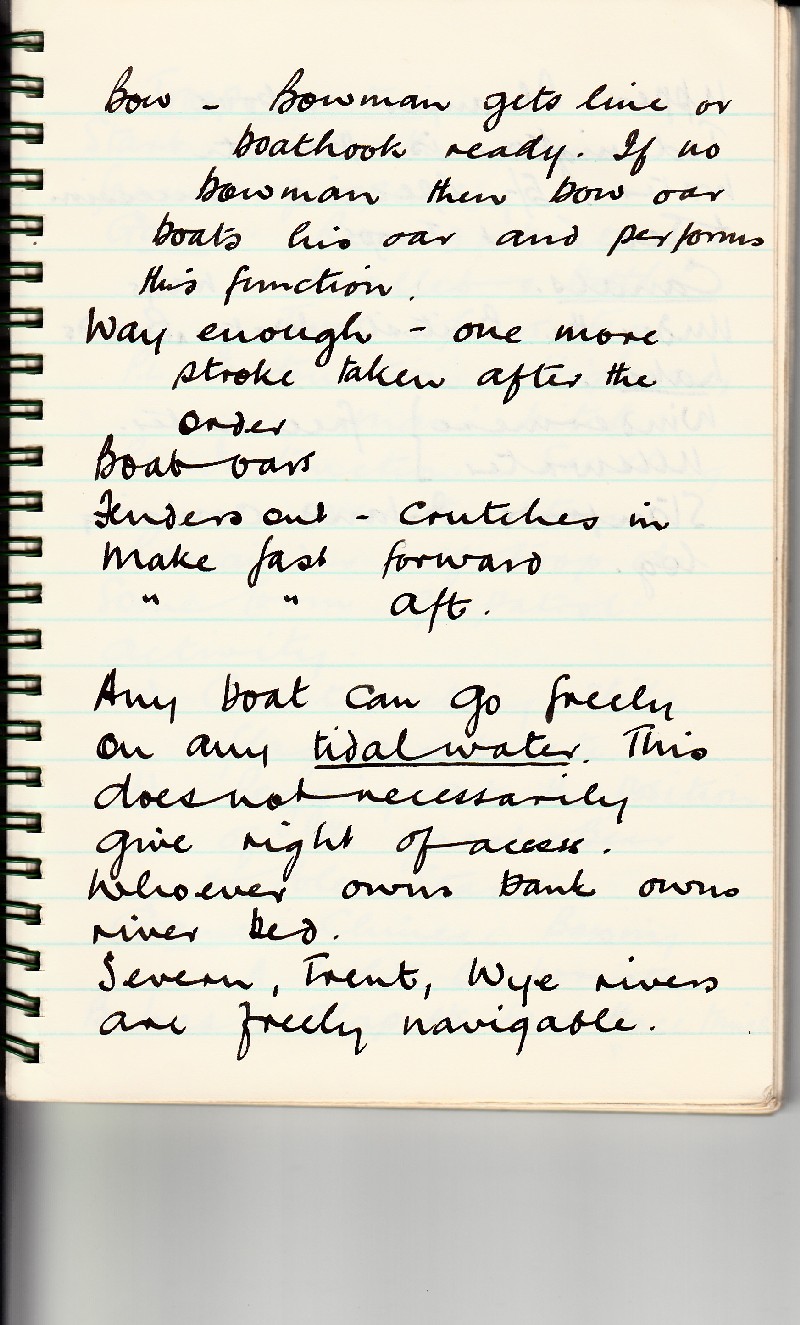 Bow - Bowman gets line or
boathook ready. If no
bowman then bow oar
boats his oar and performs
this function.
Way enough - one more
stroke taken after the
order
Boat oars
Fenders out - crutches in
Make fast forward
" " aft.
Any boat can go freely
on any tidal water. This
does not necessarily
give right of access.
Whoever owns bank owns
river bed.
Severn, Trent, Wye rivers
are freely navigable.